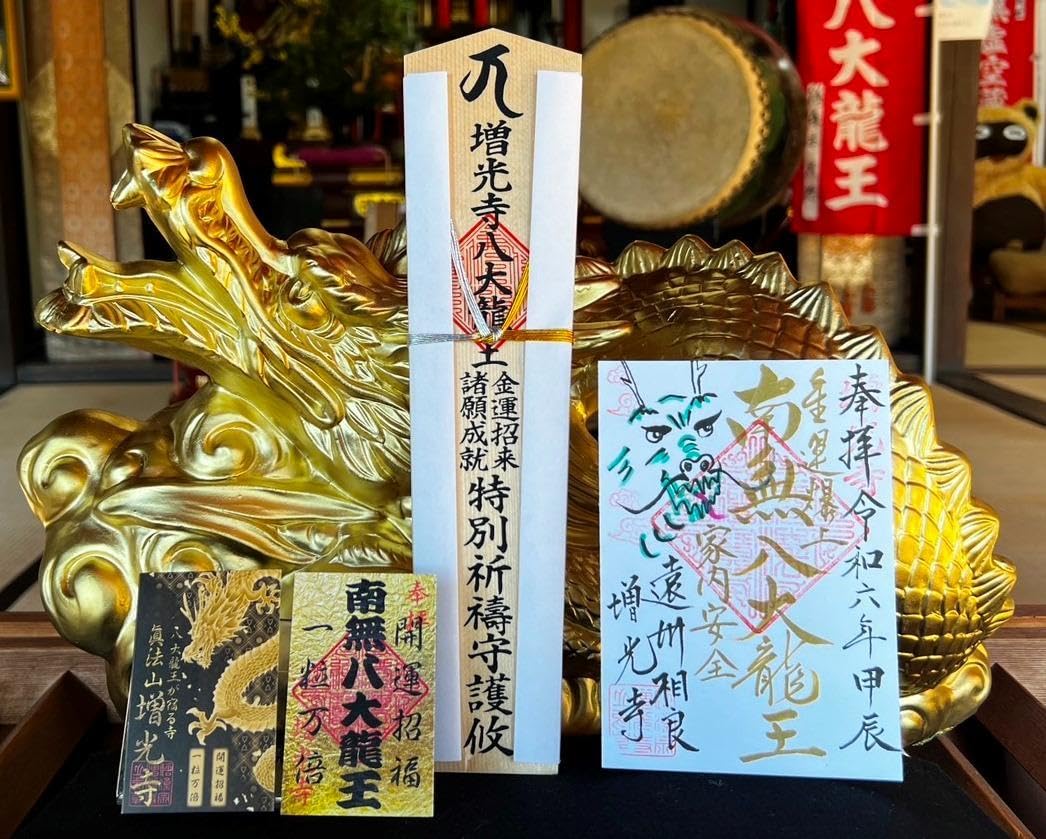 増光寺八大龍王
金運招来
諸願成就
特別祈禱守護攸
奉拝
令和六年甲辰
南無八大龍王
家内安全
遠州相良
増光寺
八大龍王が宿る寺
眞法山
増光寺
開運招福
一粒万倍
奉拝
開運招福
南無八大龍王
一粒万倍
八大龍王
虚空蔵